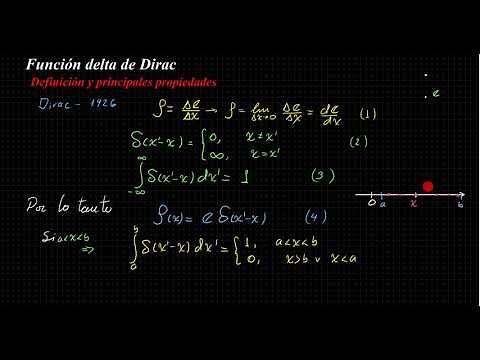 Función delta de Dirac
Defiuición y principales propiedades
Dirac - 1926
ρ = Δe/Δx → ρ = lim Δx→0 Δe/Δx = de/dx (1)
δ(x'-x) = { 0, x ≠ x'
∞, x = x' (2)
∫_{-∞}^{∞} δ(x'-x) dx' = 1 (3)
Por lo tanto
ρ(x) = e δ(x'-x) (4)
Si a<x<b
⇒
∫_a^b δ(x'-x) dx' = { 1, a<x<b
0, x>b ∨ x<a
e
0 a x b